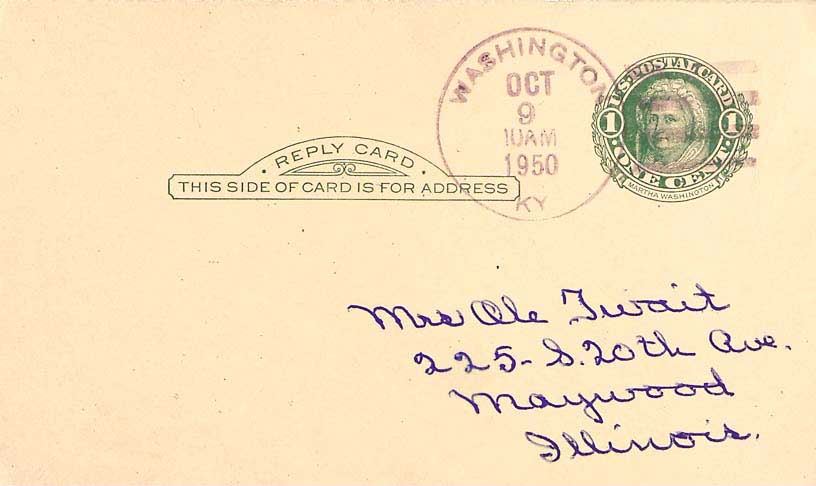 WASHINGTON
OCT
9
10AM
1950
KY
U.S. POSTAL CARD
1 1
ONE CENT
MARTHA WASHINGTON
· REPLY CARD ·
THIS SIDE OF CARD IS FOR ADDRESS
Mrs Ole Twait
225- S. 20th Ave.
Maywood
Illinois.